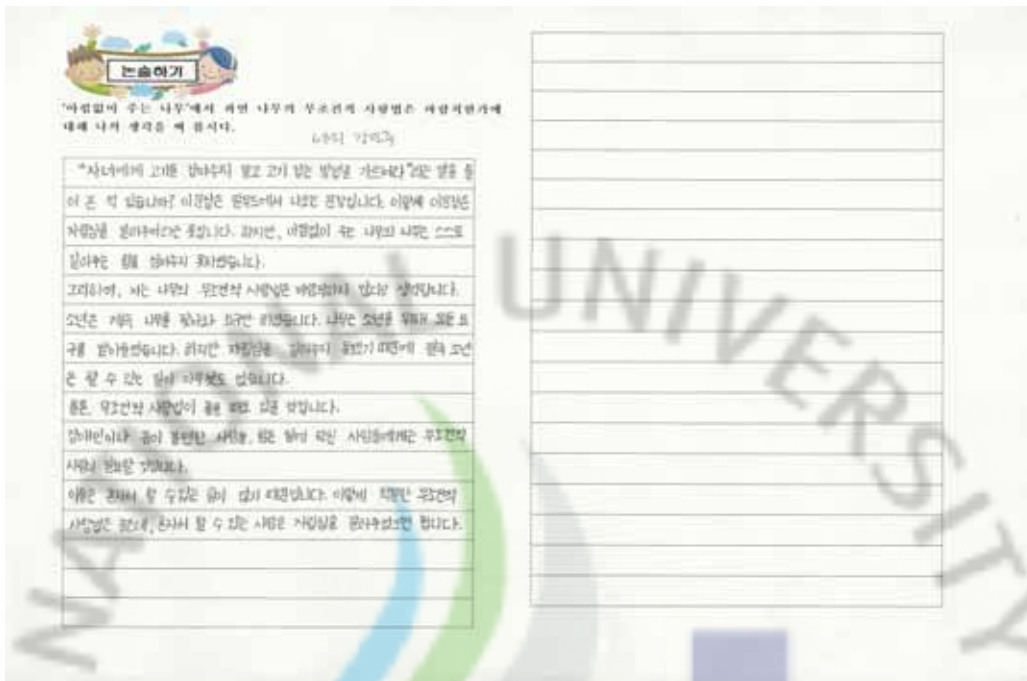 논술하기
'아낌없이 주는 나무'에서 과연 나무의 무조건적 사랑법은 바람직한가에
대해 나의 생각을 써 봅시다.
"자녀에게 고기를 잡아주지 말고 고기 잡는 방법을 가르쳐라"라는 말을 들
어 본 적 있습니까? 이 말은 탈무드에서 나오는 문장입니다. 이렇게
자립심을 길러주어야 합니다. 하지만, 아낌없이 주는 나무의 나무는 스스로
를 못하였습니다.
그리하여, 저는 나무의 무조건적 사랑법은 바람직하지 않다고 생각합니다.
소년은 계속 나무를 찾아와 요구만 하였습니다. 나무는 소년을 위해 모든 요
구를 받아들였습니다. 하지만 자립심을 길러주지 못했기 때문에 결국 소년
은 할 수 있는 일이 아무것도 없습니다.
물론, 무조건적 사랑법이 좋을 때도 있을 것입니다.
장애인이나 몸이 불편한 사람들, 사람들에게는 무조건적
사랑이 필요할 것입니다.
이들은 혼자서 할 수 있는 일이 없기 때문입니다. 이렇게 무조건적
사랑법은 혼자서 할 수 있는 사람은 자립심을 길러주었으면 합니다.
NATIONAL UNIVERSITY